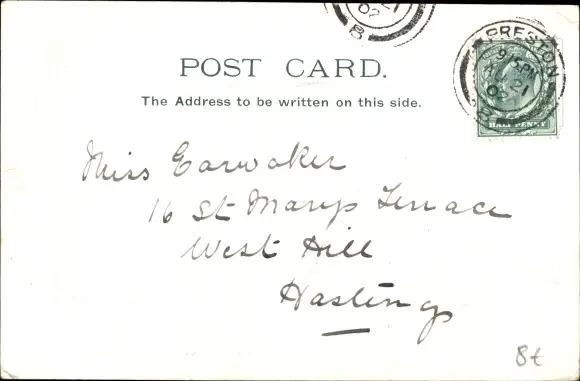 02
B
PRESTON
9 15 PM
JL 21
02
B
HALF PENNY
POST CARD.
The Address to be written on this side.
Miss Earwaker
16 St Marys Terrace
West Hill
Hastings
8t